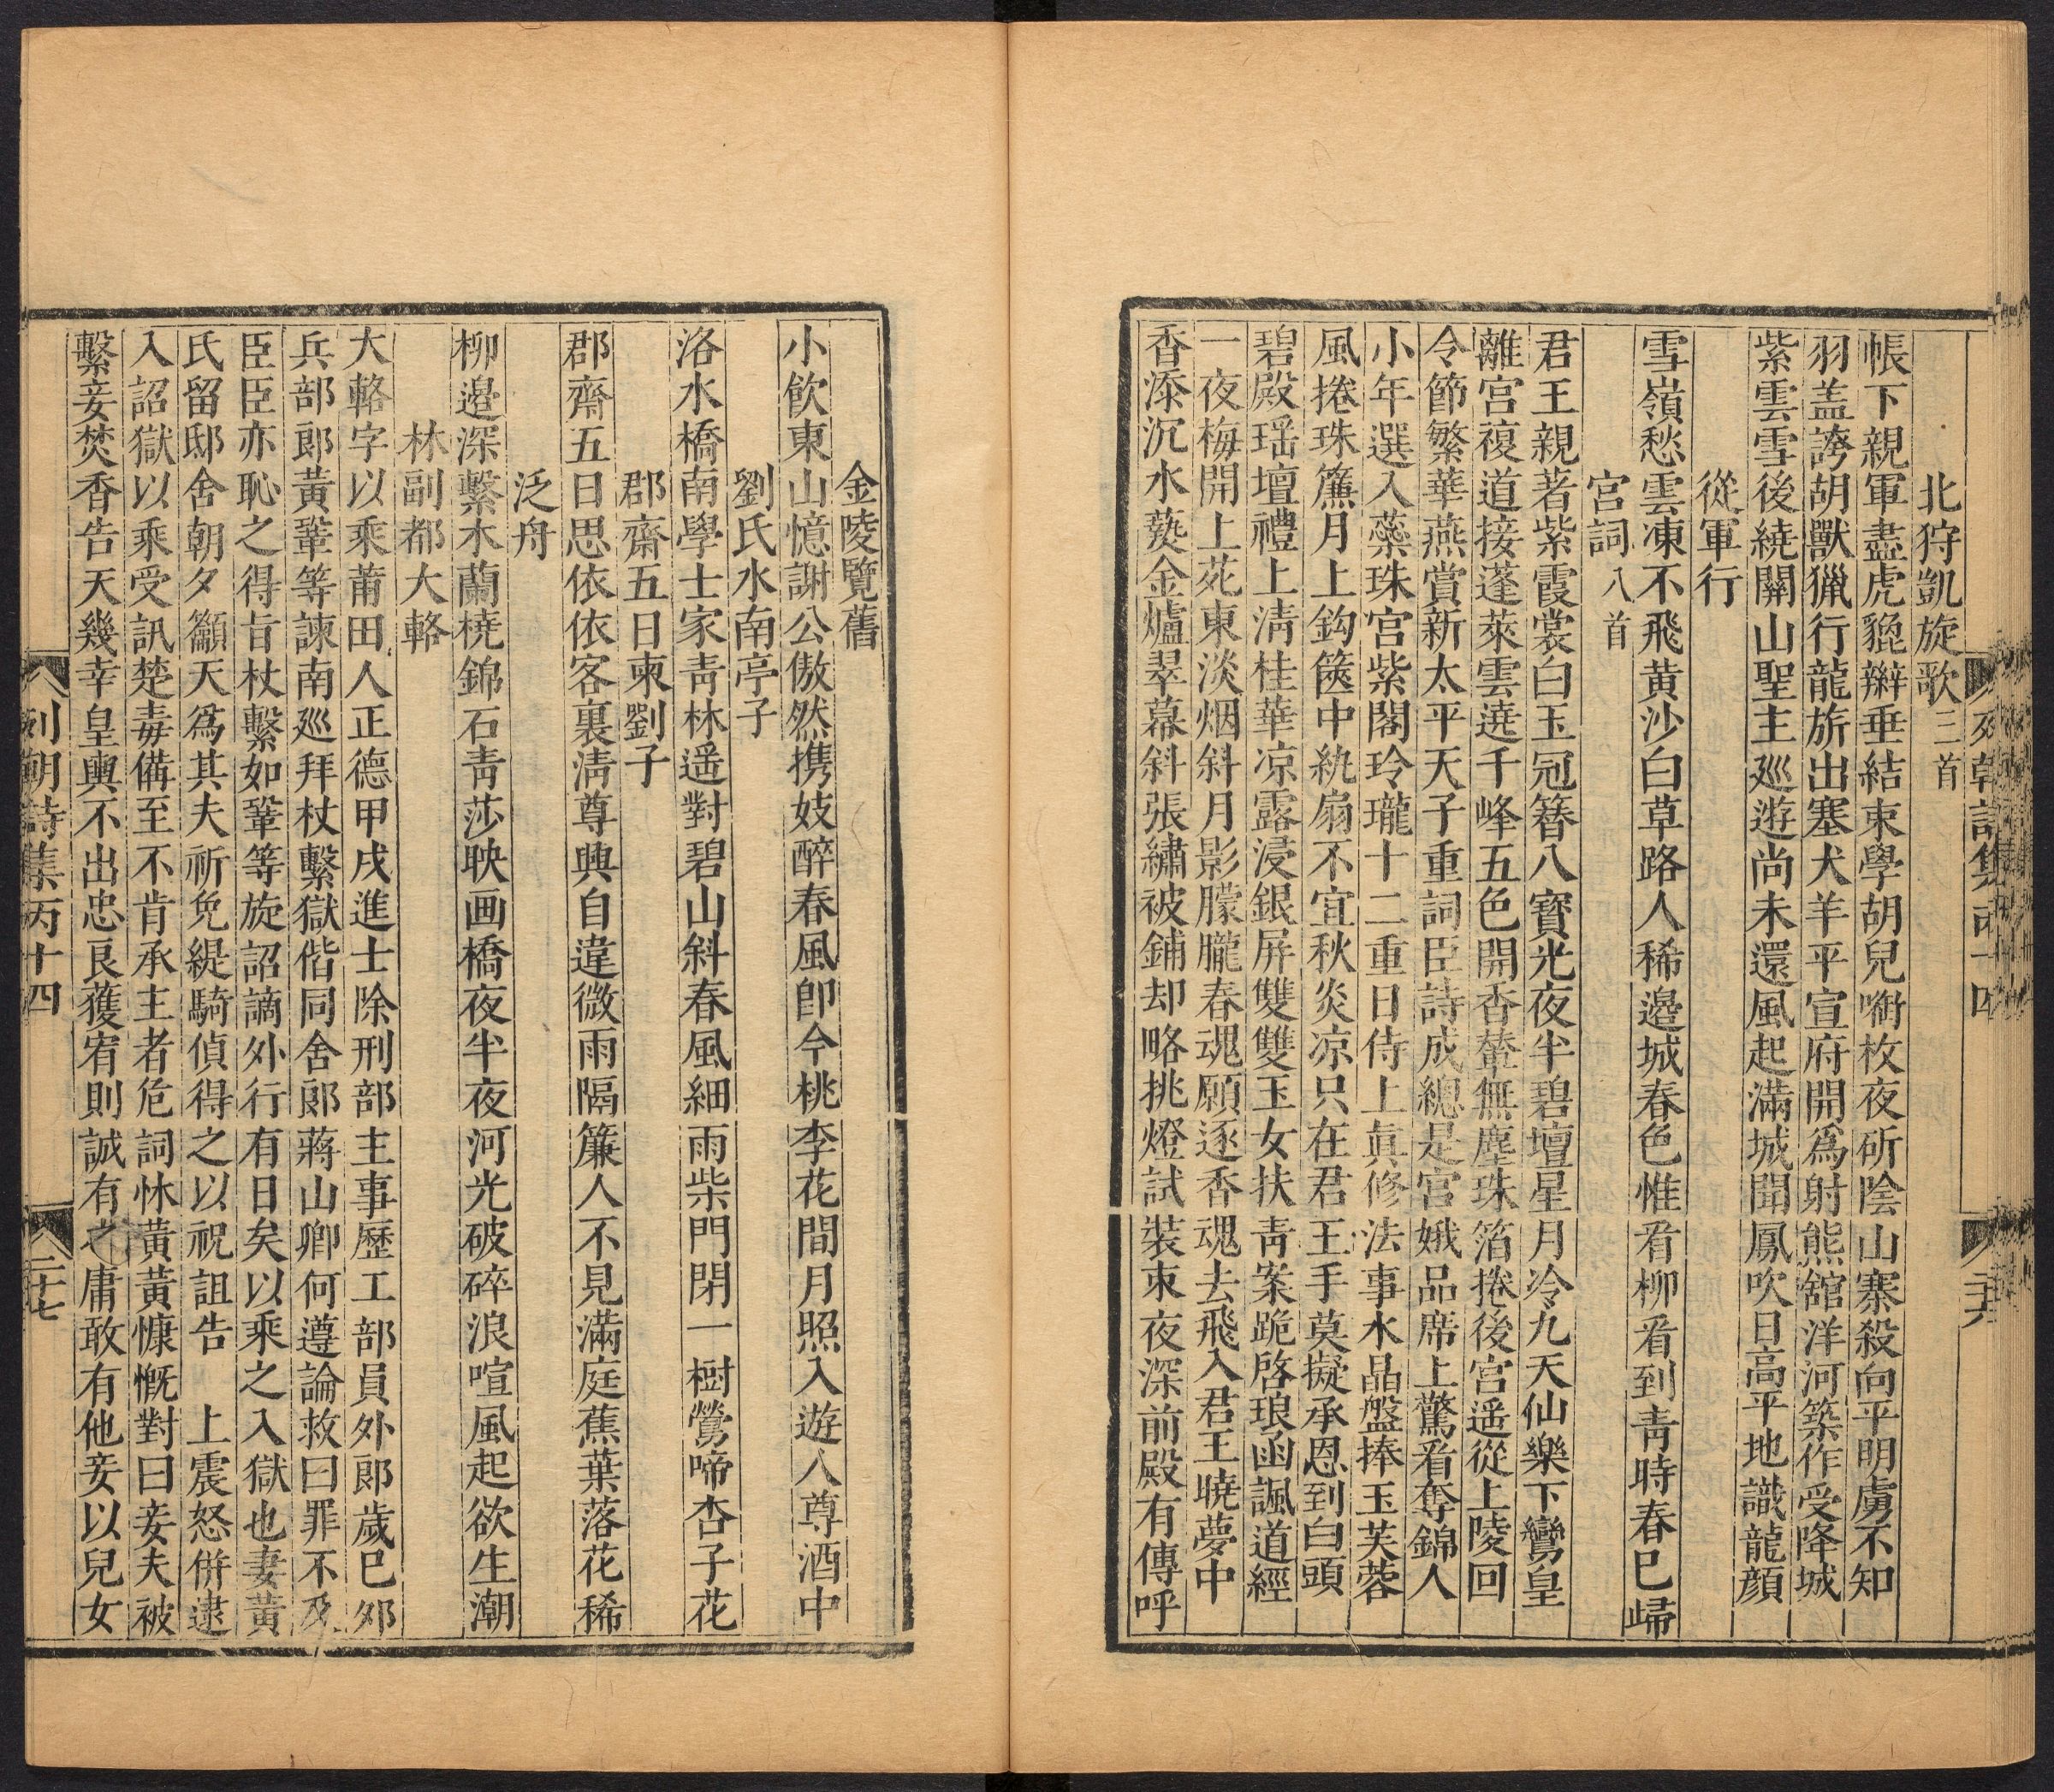 列朝詩集丙十四
二十六
北狩凱旋歌三首
帳下親軍盡虎貔辮垂結束學胡兒嘲枚夜斫陰山寨殺向平明虜不知
羽盖誇胡獸獵行龍旂出塞犬羊平宣府開爲射熊舘洋河築作受降城
紫雲雪後繞關山聖主廵遊尚未還風起滿城聞鳳吹日高平地識龍顔
從軍行
雪嶺愁雲凍不飛黄沙白草路人稀邉城春色惟看柳看到靑時春已歸
宮詞八首
君王親著紫霞裳白玉冠簪八寶光夜半碧壇星月冷九天仙樂下鸞皇
離宫複道接蓬萊雲遶千峰五色開香輦無塵珠箔捲後宫遥從上陵回
令節繁華燕賞新太平天子重詞臣詩成總是宫娥品席上驚看奪錦人
小年選入蘂珠宫紫閣玲瓏十二重日侍上眞修法事水晶盤捧玉芙蓉
風捲珠簾月上鈎篋中紈扇不宜秋炎凉只在君王手莫擬承恩到白頭
碧殿瑶壇禮上淸桂華凉露浸銀屏雙雙玉女扶靑案跪啓琅函諷道經
一夜梅開上苑東淡烟斜月影朦朧春魂願逐香魂去飛入君王曉夢中
香添沉水爇金爐翠幕斜張繡被鋪却略挑燈試裝束夜深前殿有傳呼
金陵覽舊
小飮東山憶謝公傲然携妓醉春風卽今桃李花間月照入遊人尊酒中
劉氏水南亭子
洛水橋南學士家靑林遥對碧山斜春風細雨柴門閉一樹鶯啼杏子花
郡齋五日柬劉子
郡齋五日思依依客裏淸尊興自違微雨隔簾人不見滿庭蕉葉落花稀
泛舟
柳邉深繫木蘭橈錦石靑莎映画橋夜半夜河光破碎浪喧風起欲生潮
林副都大輅
大輅字以乘莆田人正德甲戌進士除刑部主事歷工部員外郞歲巳夘
兵部郞黄鞏等諫南廵拜杖繫獄偕同舍郞蔣山卿何遵論救曰罪不及
臣臣亦恥之得旨杖繫如鞏等旋詔謫外行有日矣以乘之入獄也妻黃
氏留邸舍朝夕籲天爲其夫祈免緹騎偵得之以祝詛告　上震怒併逮
入詔獄以乘受訊楚毒備至不肯承主者危詞怵黃黃慷慨對曰妾夫被
繫妾焚香告天幾幸皇輿不出忠良獲宥則誠有之庸敢有他妾以兒女
列朝詩集丙十四
二十七